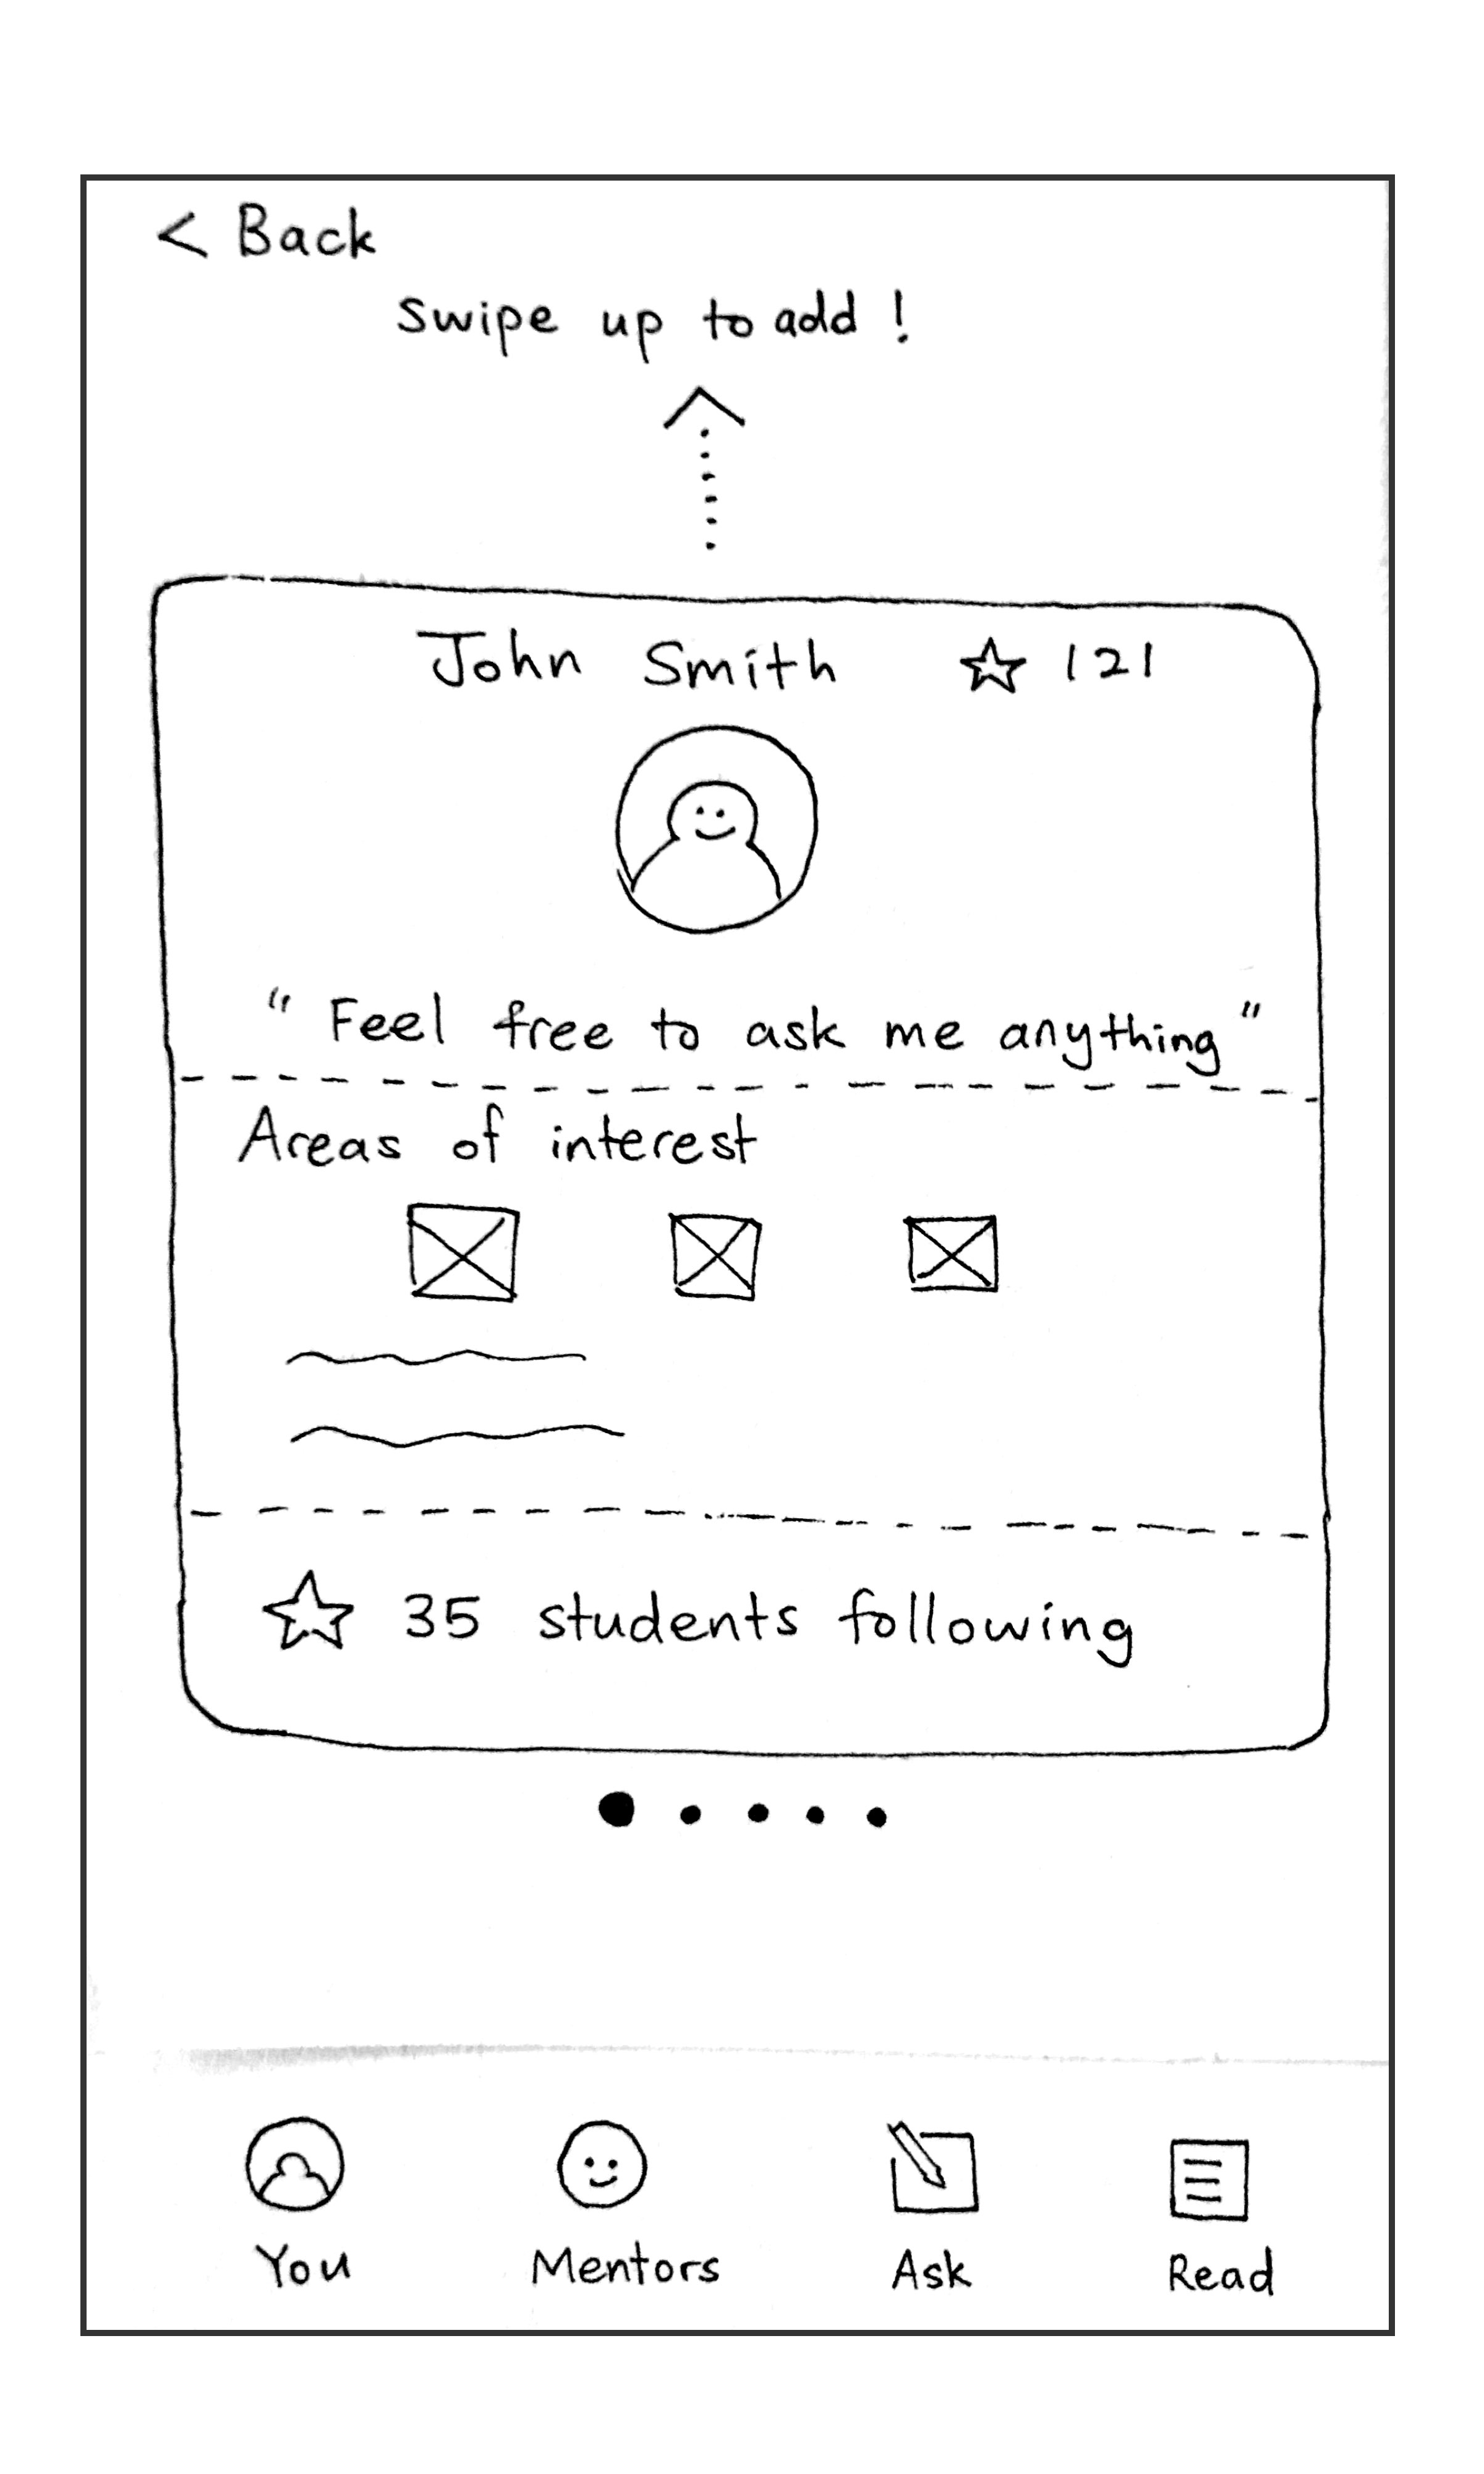 < Back
swipe up to add !
John Smith ☆ 121
" Feel free to ask me anything "
Areas of interest
☆ 35 students following
You Mentors Ask Read